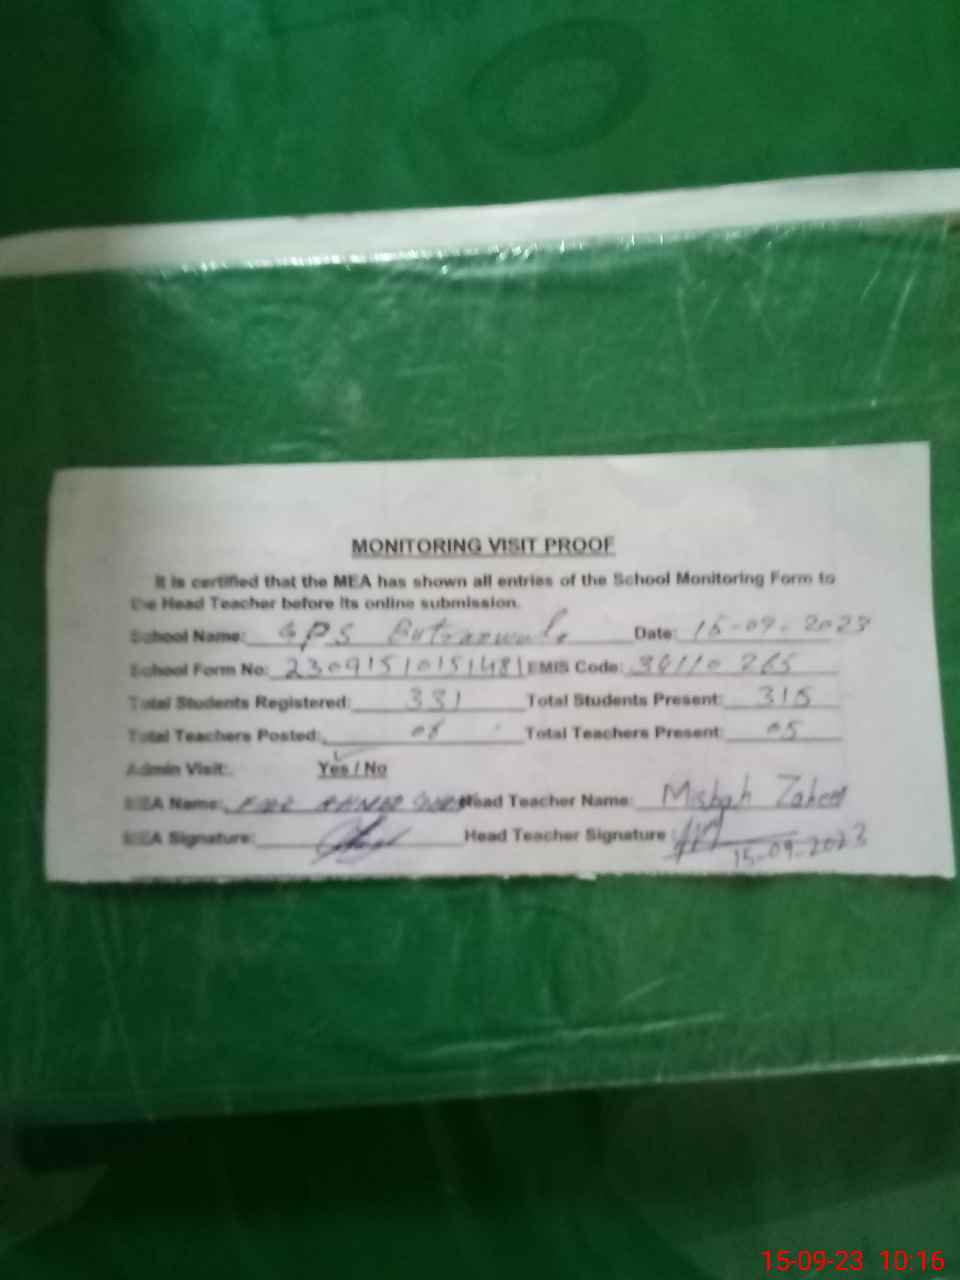 MONITORING VISIT PROOF
It is certified that the MEA has shown all entries of the School Monitoring Form to
the Head Teacher before its online submission.
School Name: GPS Date: 15-09-2023
School Form No: 23091510151481 EMIS Code: 34110265
Total Students Registered: 331 Total Students Present: 315
Total Teachers Posted: Total Teachers Present: 05
Admin Visit: Yes / No
MEA Name: Head Teacher Name: Misbah Zaheer
MEA Signature: Head Teacher Signature
15-09-2023
15-09-23 10:16